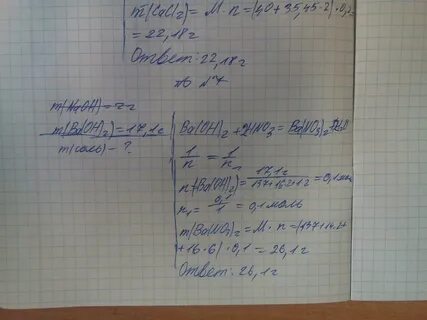 m(CaCl₂) = M · n = (40 + 35,45 · 2) · 0,2
= 22,18 г
Ответ: 22,18 г
№7
m(Ba(OH)₂) = 17,1 г
m(соль) - ?
Ba(OH)₂ + 2HNO₃ = Ba(NO₃)₂ + 2H₂O
1/n = 1/n₁
n(Ba(OH)₂) = 17,1 г / 137+16·2+1·2 = 0,1 моль
n₁ = 0,1/1 = 0,1 моль
m(Ba(NO₃)₂ = M · n = (137 + 14·2+
+ 16·6) · 0,1 = 26,1 г
Ответ: 26,1 г